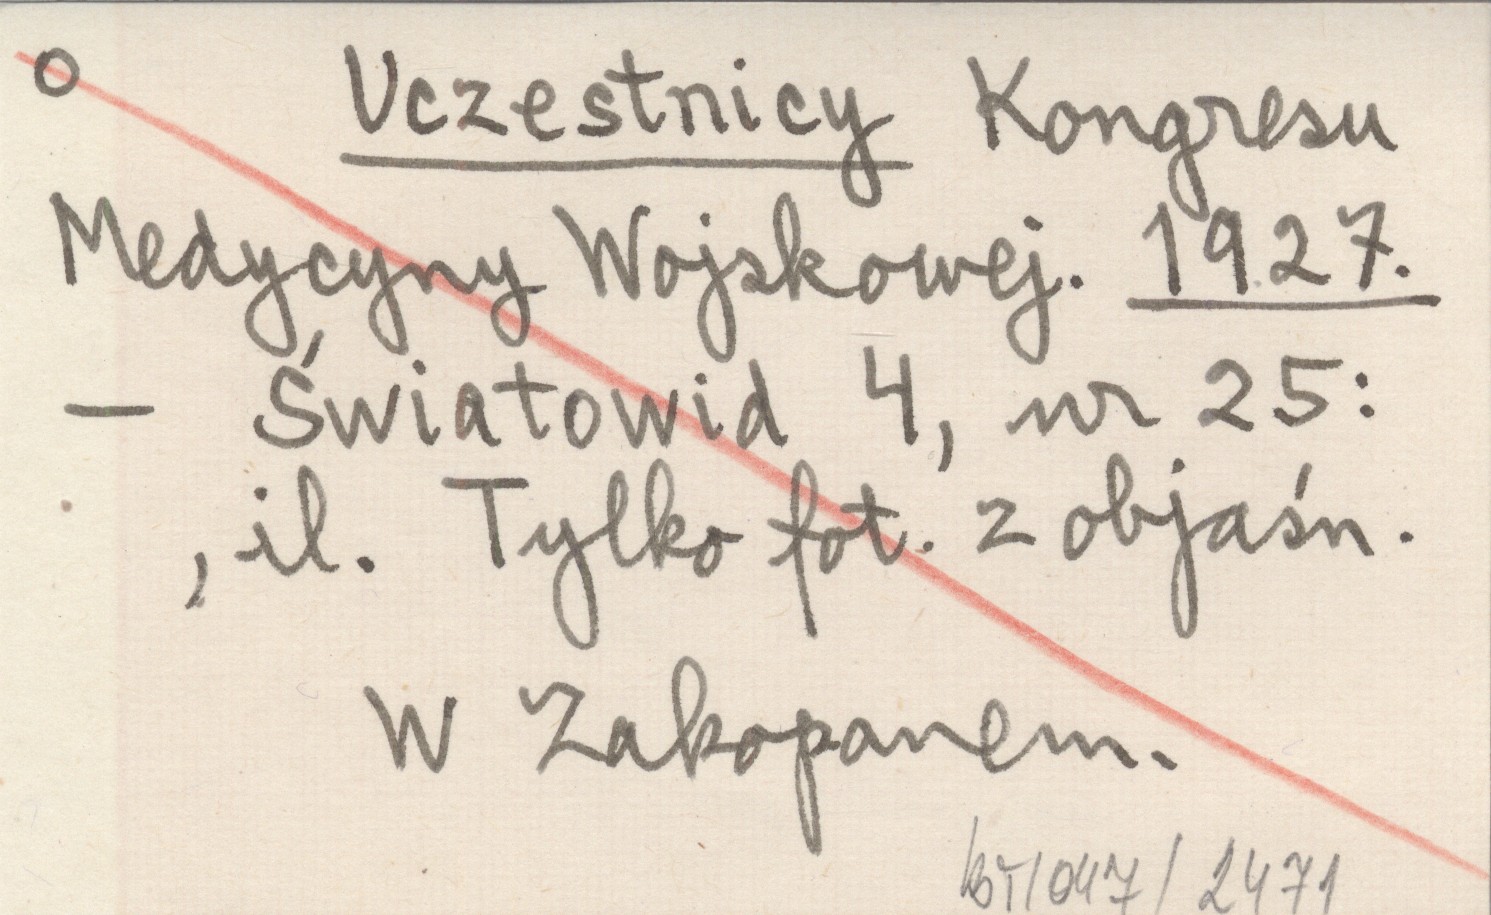 o Uczestnicy Kongresu
Medycyny Wojskowej. 1927.
— Światowid 4, nr 25:
, il. Tylko fot. z objaśn.
W Zakopanem.
/047/2471